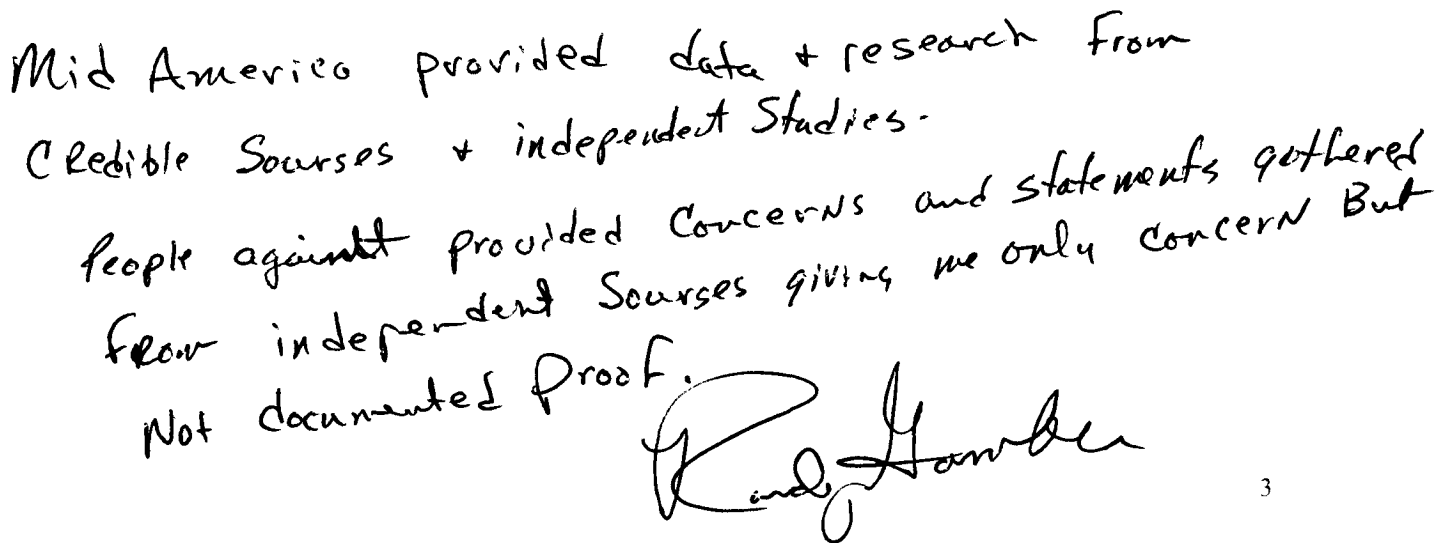 Mid America provided data + research From
CRedible Sourses + independent Studies.
People against provided Concerns and statements gathered
from independent Sourses giving me only concern But
Not documented Proof.
Randy
3